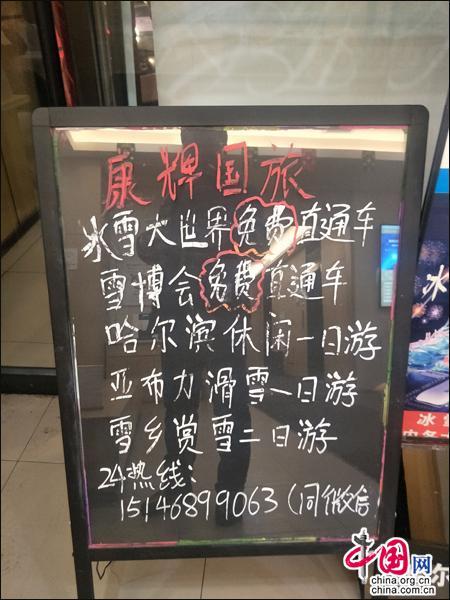 康辉国旅
冰雪大世界免费直通车
雪博会免费直通车
哈尔滨休闲一日游
亚布力滑雪一日游
雪乡赏雪二日游
24热线:
15146899063(同微信)
冰
冰雪
中国网
china.org.cn
china.com.cn
尔